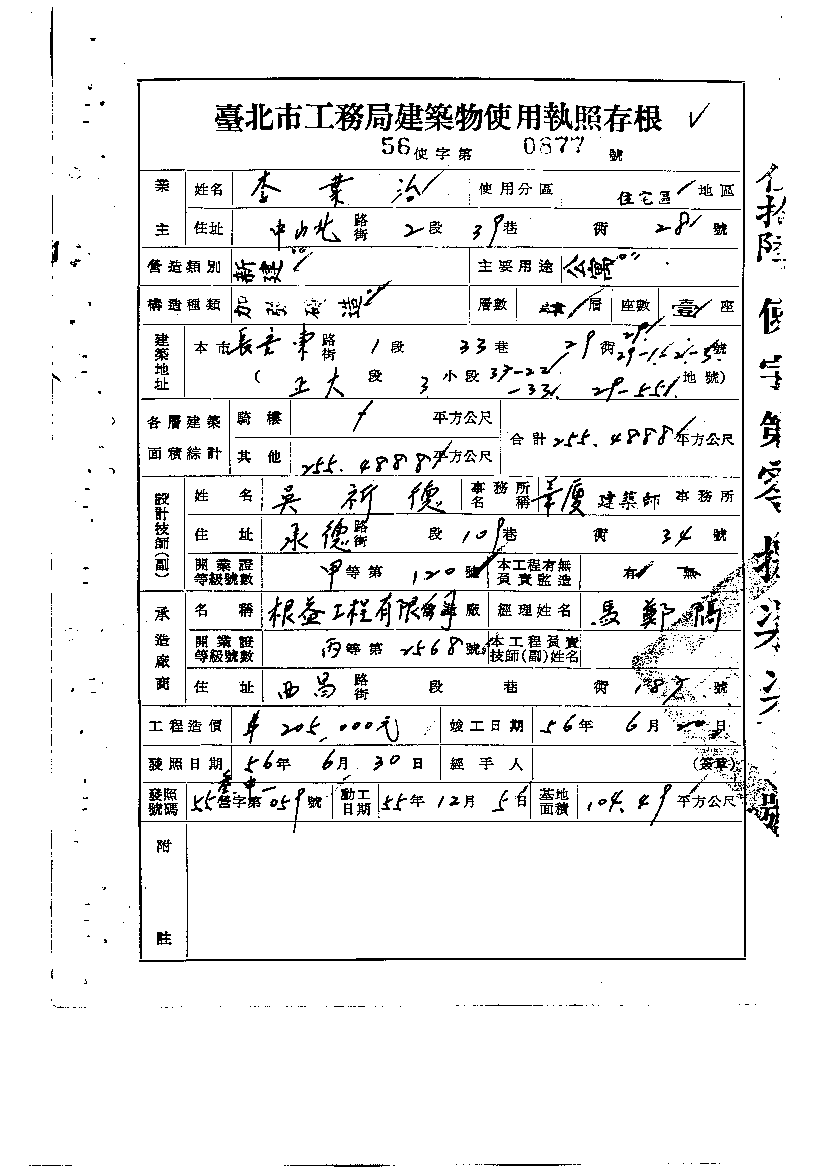 臺北市工務局建築物使用執照存根
56使字第 0877 號
業主 姓名 李業治 使用分區 住宅區 地區
住址 中山北路街 2段 39巷 街 28號
營造類別 新建 主要用途 公寓
構造種類 加強磚造 層數 層 座數 壹座
建築地址 本市長安東路街 1段 33巷 29街 29-1.5 號
(正大段 3小段 37-22 -33. 29-551. 地號)
各層建築面積綜計 騎樓 平方公尺 合計 255.4888 平方公尺
其他 255.4888 平方公尺
設計技師(副) 姓名 吳祈德 事務所名稱 華廈建築師事務所
住址 承德路街 段 109巷 街 34號
開業證等級號數 甲等第 120號 本工程有無負責監造 有 無
承造廠商 名稱 根益工程有限 廠 經理姓名 馬鄭
開業證等級號數 丙等第 2568號 本工程負責技師(副)姓名
住址 西昌路街 段 巷 街 187號
工程造價 205,000元 竣工日期 56年 6月 20日
發照日期 56年 6月 30日 經手人 (簽章)
發照號碼 55營字第059號 動工日期 55年 12月 5日 基地面積 104.49 平方公尺
附註